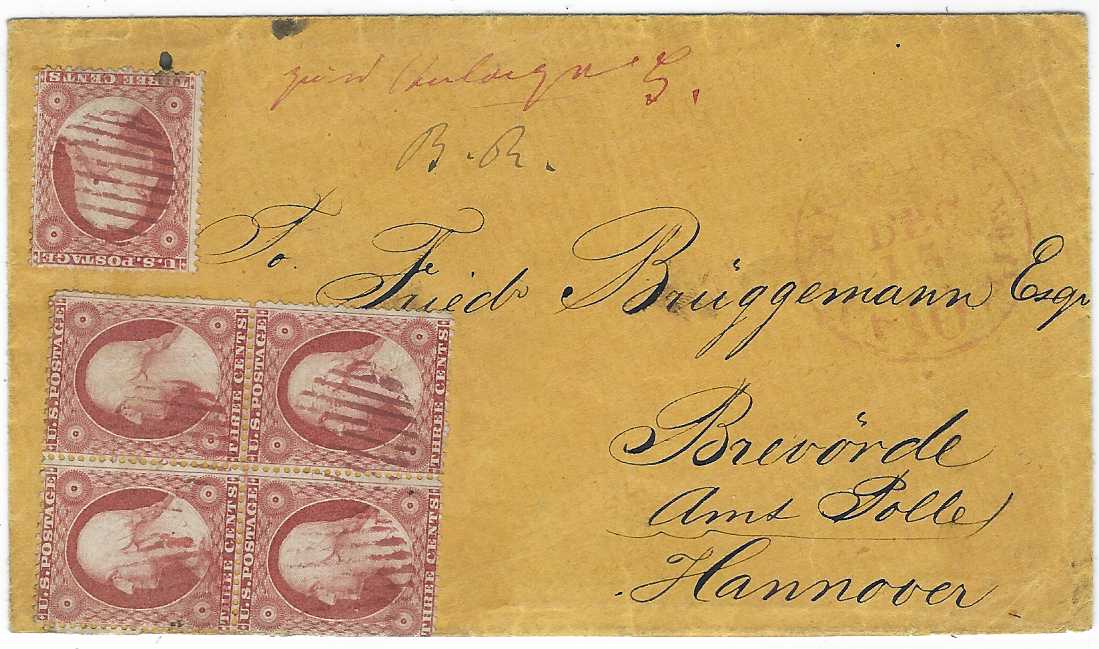 THREE CENTS
U.S. POSTAGE
B. R.
DEC
To. Friedr Brüggemann Esqr
U.S. POSTAGE THREE CENTS U.S. POSTAGE THREE CENTS
Brevörde
Amt Polle
Hannover
U.S. POSTAGE THREE CENTS U.S. POSTAGE THREE CENTS